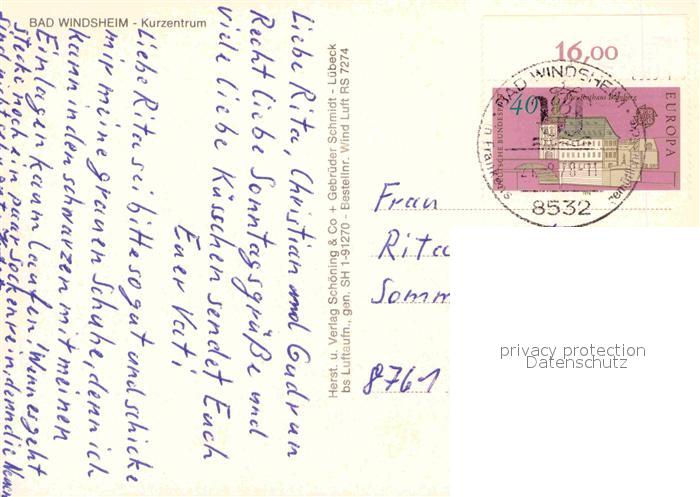 BAD WINDSHEIM - Kurzentrum
Liebe Rita, Christian und Gudrun
Recht liebe Sonntagsgrüße und
viele liebe Küsschen sendet Euch
Euer Vati
Liebe Rita sei bitte so gut und schicke
mir meine grauen Schuhe, denn ich
kann in den schwarzen mit meinen
Einlagen kaum laufen! Wenn es geht
stecke noch ein paar Socken rein, denn die Neuen
sind
Herst. u. Verlag Schöning & Co + Gebrüder Schmidt - Lübeck
bs Luftaufn., gen. SH 1-91270 - Bestellnr. Wind Luft RS 7274
16,00
BAD WINDSHEIM
40
EUROPA
DEUTSCHE BUNDESPOST
8532
Frau
Rita
Somm
8761
privacy protection
Datenschutz